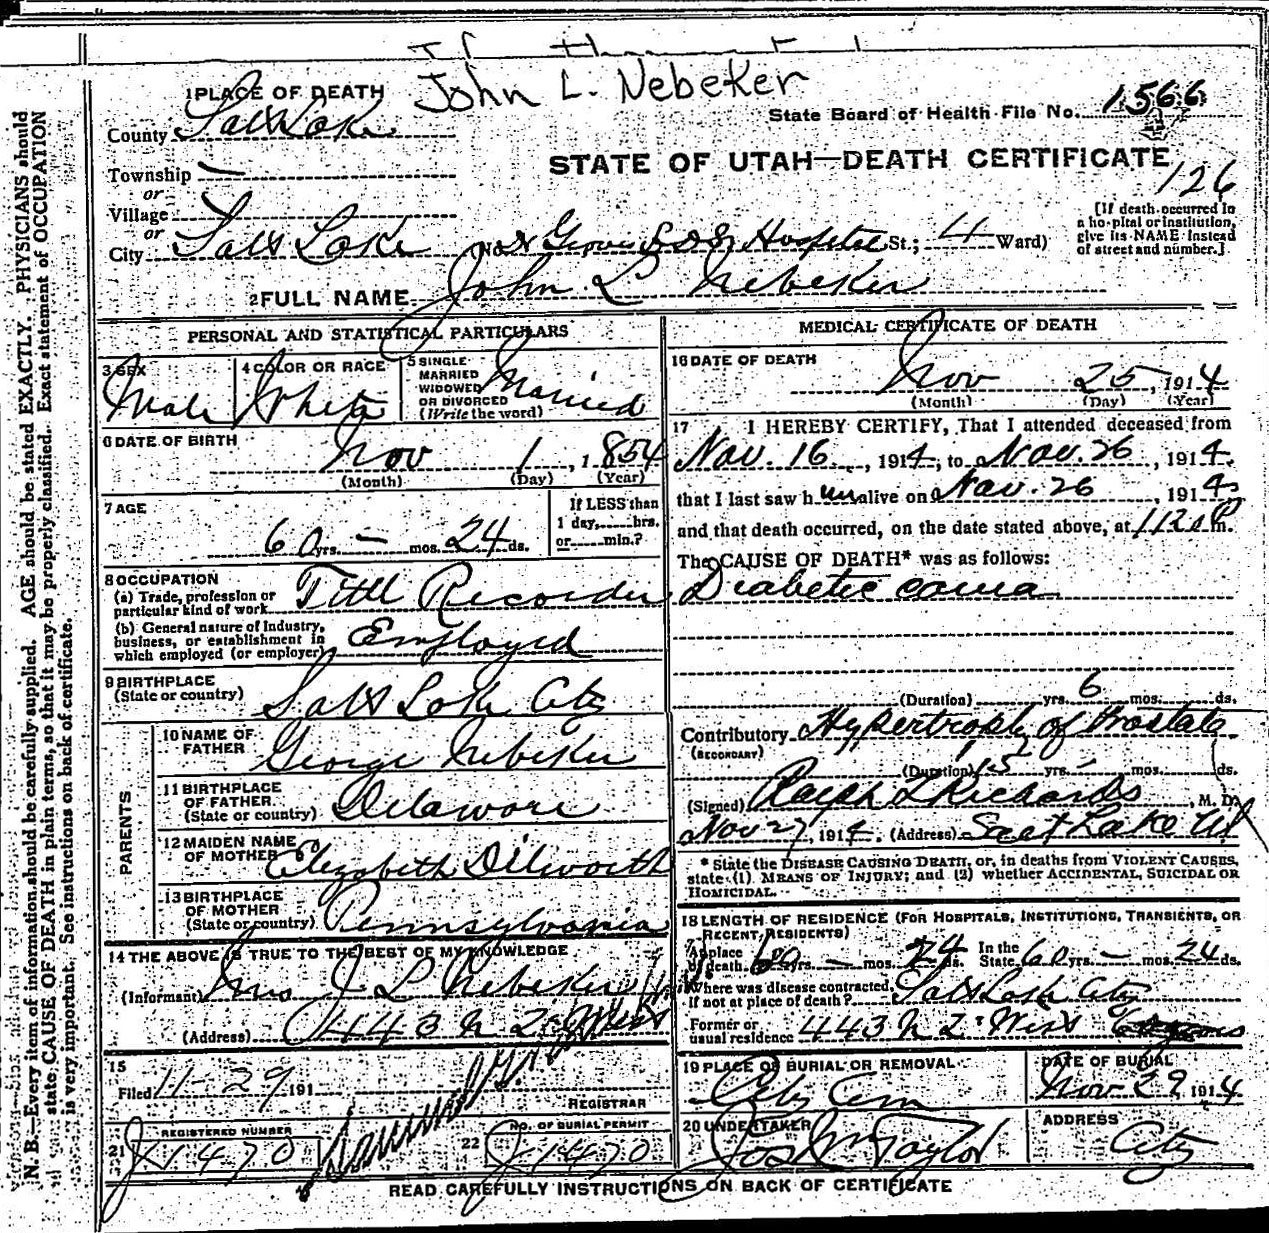 John L. Nebeker
1 PLACE OF DEATH
State Board of Health File No. 1566
County Salt Lake
STATE OF UTAH—DEATH CERTIFICATE
126
Township —
or
Village
or
City Salt Lake (No. Groves L D S Hospital St.; 4 Ward)
[If death occurred in
a hospital or institution,
give its NAME instead
of street and number.]
2 FULL NAME John L Nebeker
PERSONAL AND STATISTICAL PARTICULARS
3 SEX Male
4 COLOR OR RACE White
5 SINGLE
MARRIED
WIDOWED
OR DIVORCED
(Write the word) Married
6 DATE OF BIRTH
Nov 1, 1854
(Month) (Day) (Year)
7 AGE
60 yrs. — mos. 24 ds.
If LESS than
1 day, hrs.
or min.?
8 OCCUPATION
(a) Trade, profession or
particular kind of work Title Recorder
(b) General nature of Industry,
business, or establishment in
which employed (or employer) Employed
9 BIRTHPLACE
(State or country) Salt Lake City
PARENTS
10 NAME OF
FATHER George Nebeker
11 BIRTHPLACE
OF FATHER
(State or country) Delaware
12 MAIDEN NAME
OF MOTHER Elizabeth Dilworth
13 BIRTHPLACE
OF MOTHER
(State or country) Pennsylvania
14 THE ABOVE IS TRUE TO THE BEST OF MY KNOWLEDGE
(Informant) Mrs J L Nebeker
(Address) 443 N 2 West
15
Filed 11-29 191
REGISTRAR
REGISTERED NUMBER
21 J 1470
NO. OF BURIAL PERMIT
22 J 1470
MEDICAL CERTIFICATE OF DEATH
16 DATE OF DEATH
Nov 25, 1914
(Month) (Day) (Year)
17 I HEREBY CERTIFY, That I attended deceased from
Nov. 16, 1914, to Nov. 26, 1914.
that I last saw him alive on Nov. 26, 1914
and that death occurred, on the date stated above, at P m.
The CAUSE OF DEATH* was as follows:
Diabetic coma
(Duration) yrs. 6 mos. ds.
Contributory Hypertrophy of Prostate
(SECONDARY)
(Duration) yrs. mos. ds.
(Signed) Ralph T Richards, M. D.
Nov 27, 1914. (Address) Salt Lake Ut
* State the DISEASE CAUSING DEATH, or, in deaths from VIOLENT CAUSES,
state (1) MEANS OF INJURY; and (2) whether ACCIDENTAL, SUICIDAL OR
HOMICIDAL.
18 LENGTH OF RESIDENCE (FOR HOSPITALS, INSTITUTIONS, TRANSIENTS, OR
RECENT RESIDENTS)
At place
of death 60 yrs. — mos. 24 ds. In the
State 60 yrs. — mos. 24 ds.
Where was disease contracted,
if not at place of death? Salt Lake City
Former or
usual residence 443 N 2 West
19 PLACE OF BURIAL OR REMOVAL
City Cem
DATE OF BURIAL
Nov 29 1914
20 UNDERTAKER
Jos Wm Taylor
ADDRESS
City
READ CAREFULLY INSTRUCTIONS ON BACK OF CERTIFICATE
N. B.—Every item of information should be carefully supplied. AGE should be stated EXACTLY. PHYSICIANS should
state CAUSE OF DEATH in plain terms, so that it may be properly classified. Exact statement of OCCUPATION
is very important. See instructions on back of certificate.